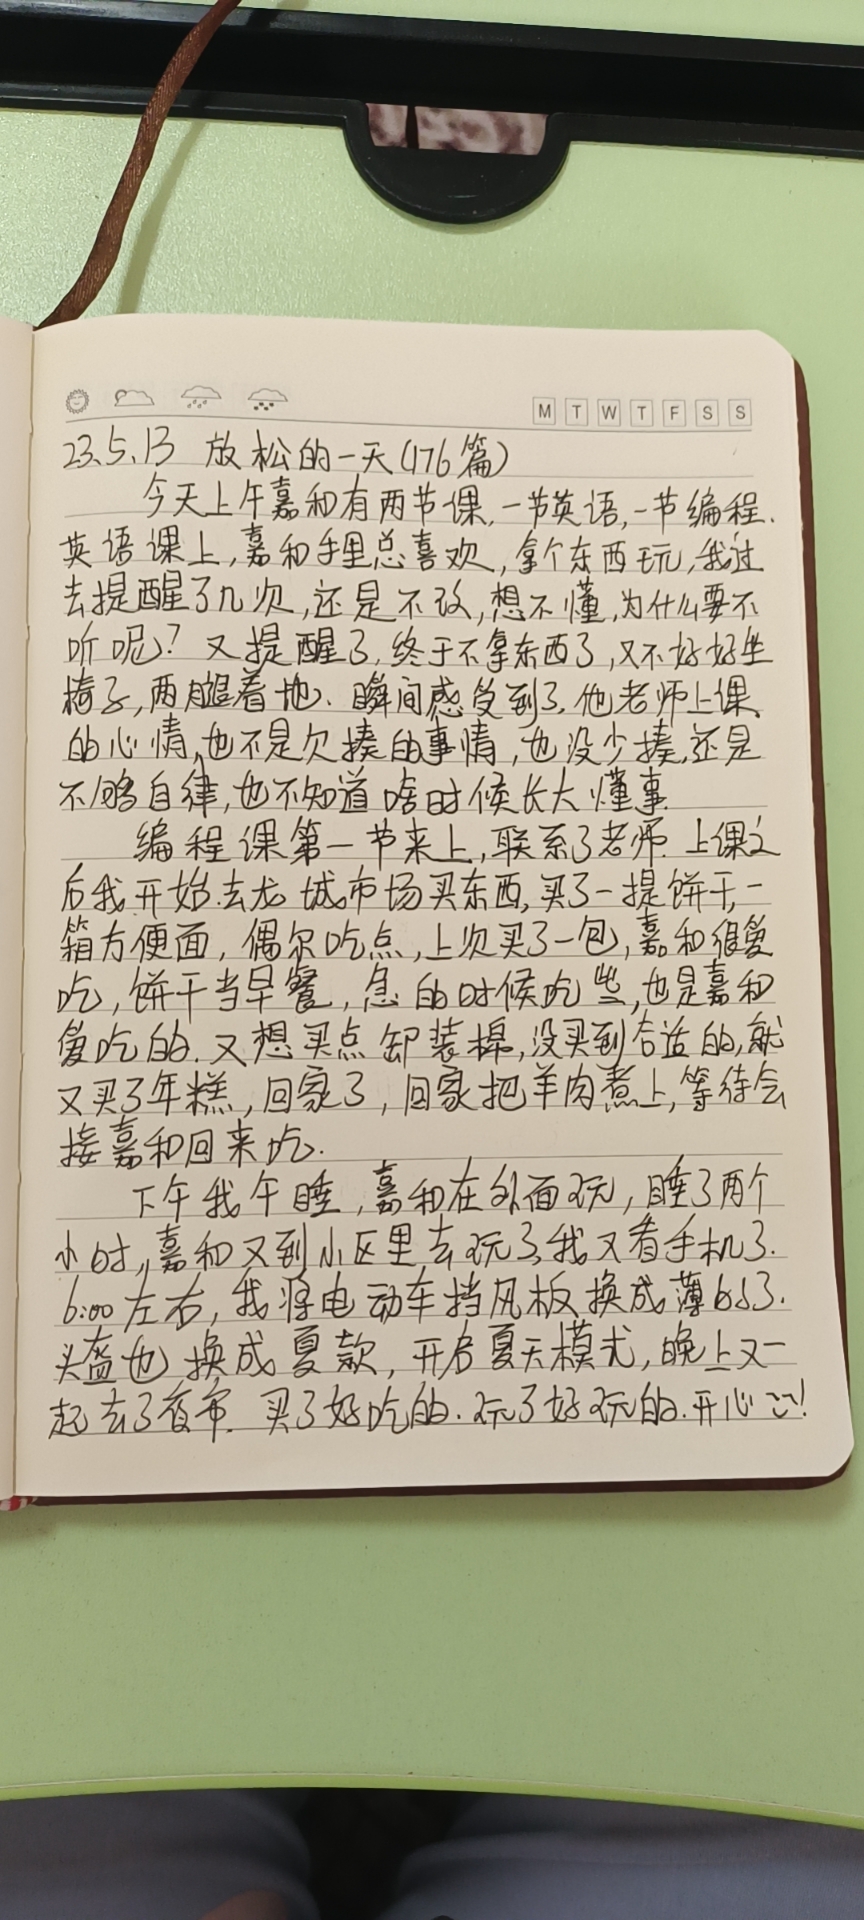 M T W T F S S
23.5.13 放松的一天(176篇)
今天上午嘉和有两节课,一节英语,一节编程.
英语课上,嘉和手里总喜欢,拿个东西玩,我过
去提醒了几次,还是不改,想不懂,为什么要不
听呢?又提醒了,终于不拿东西了,又不好好坐
椅子,两腿着地.瞬间感受到了,他老师上课
的心情,也不是欠揍的事情,也没少揍,还是
不够自律,也不知道啥时候长大懂事.
编程课第一节来上,联系了老师.上课之
后我开始去龙城市场买东西,买了一提饼干,一
箱方便面,偶尔吃点,上次买了一包,嘉和很爱
吃,饼干当早餐,急的时候吃些,也是嘉和
爱吃的.又想买点卸装棉,没买到合适的,就
又买了年糕,回家了,回家把羊肉煮上,等待会
接嘉和回来吃.
下午我午睡,嘉和在外面玩,睡了两个
小时,嘉和又到小区里去玩了,我又看手机了.
6:00左右,我将电动车挡风板换成薄的了.
头盔也换成夏款,开启夏天模式,晚上又一
起去了夜市.买了好吃的.玩了好玩的.开心!